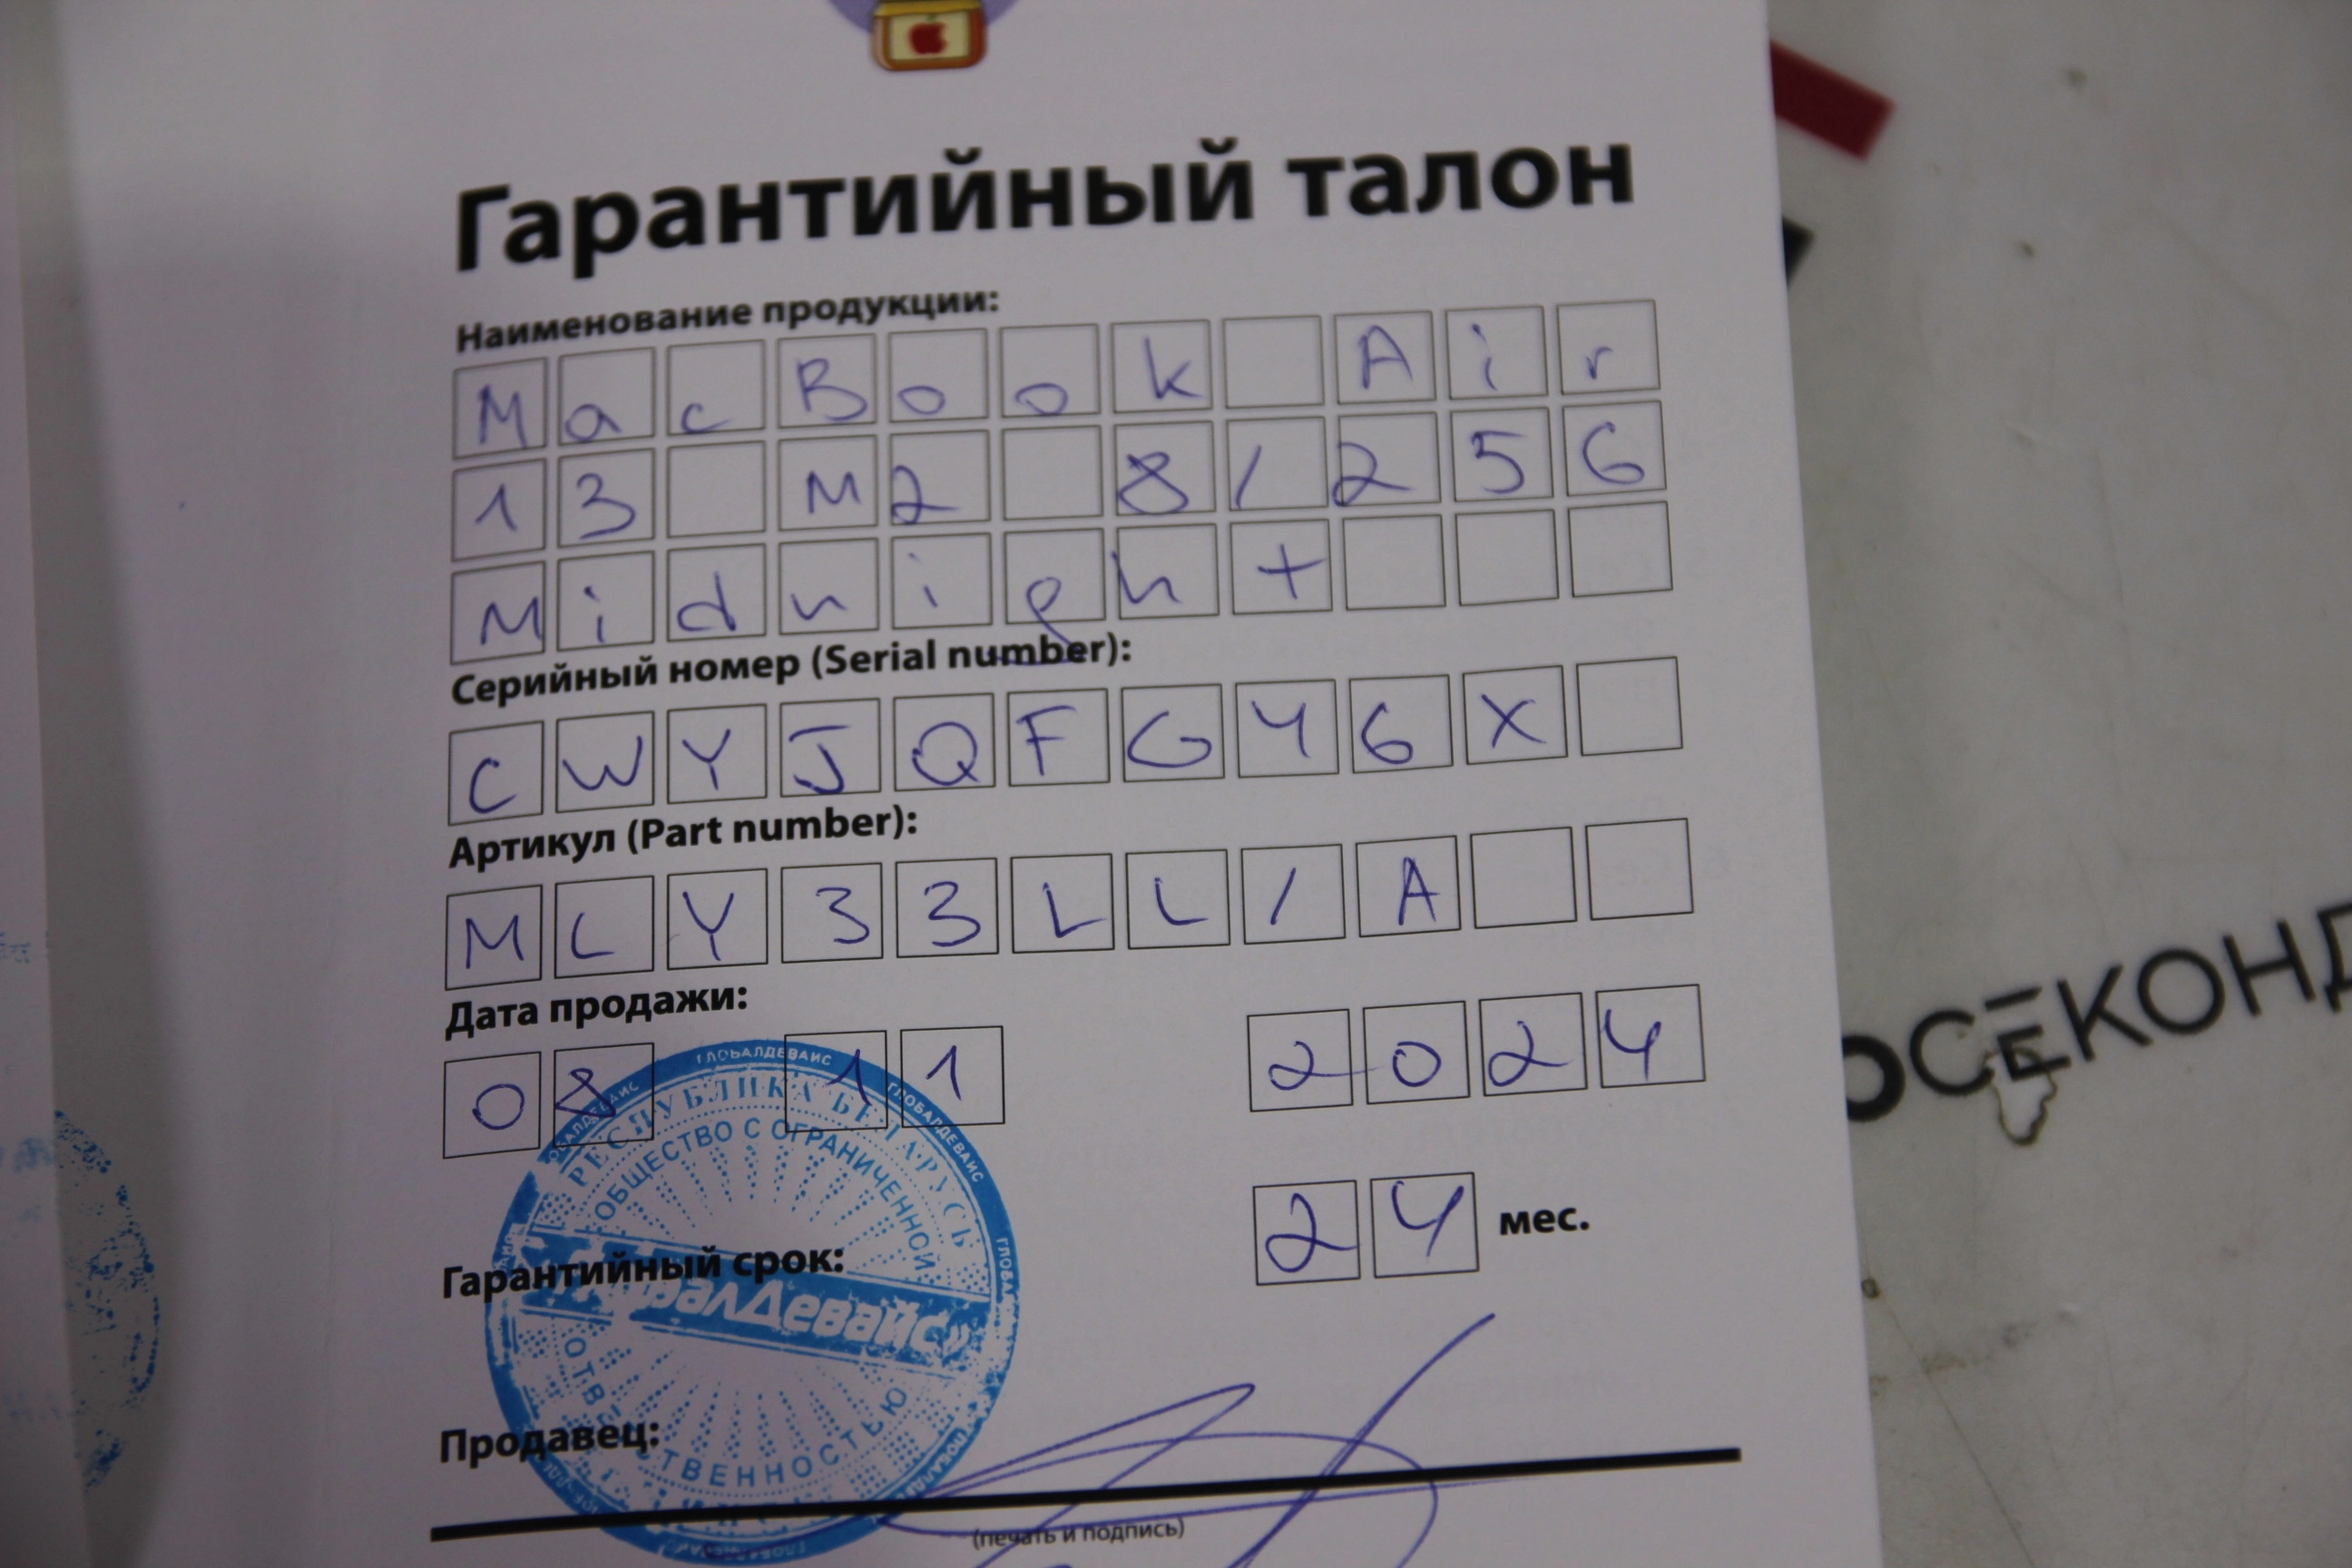 Гарантийный талон
Наименование продукции:
MacBook Air
13 M2 8/256
Midnight
Серийный номер (Serial number):
CWYJQFG46X
Артикул (Part number):
MLY33LL/A
Дата продажи:
08 11 2024
Гарантийный срок: 24 мес.
Продавец:
(печать и подпись)
РЕСПУБЛИКА БЕЛАРУСЬ
ОБЩЕСТВО С ОГРАНИЧЕННОЙ
ОТВЕТСТВЕННОСТЬЮ
ГЛОБАЛДЕВАЙС
«ГлобалДевайс»